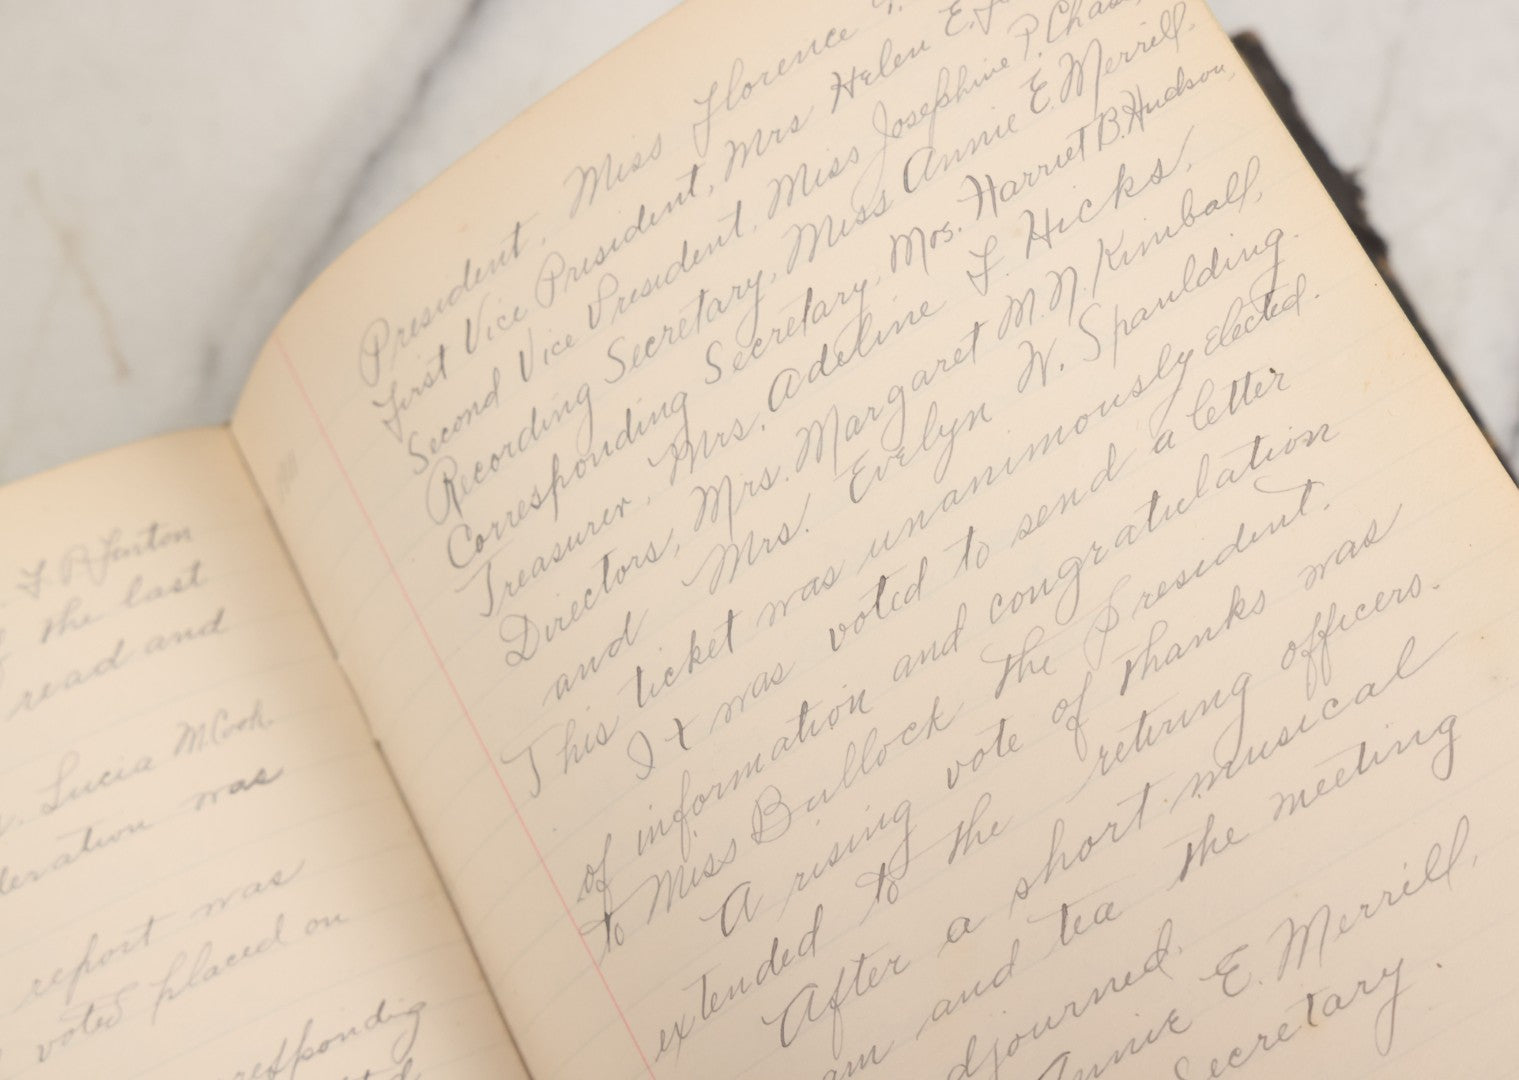 F. P. Fenton
the last
read and
Lucia M. Cook.
was
report was
voted placed on
President, Miss Florence
First Vice President, Mrs Helen E.
Second Vice President, Miss Josephine P.
Recording Secretary, Miss Annie E. Merrill.
Corresponding Secretary, Mrs. Harriet B. Hudson,
Treasurer, Mrs. Adeline F. Hicks.
Directors, Mrs. Margaret M. N. Kimball,
and Mrs. Evelyn W. Spaulding.
This ticket was unanimously elected.
It was voted to send a letter
of information and congratulation
to Miss Bullock the President.
A rising vote of thanks was
extended to the retiring officers.
After a short musical
and tea the meeting
adjourned.
Annie E. Merrill,
Secretary.